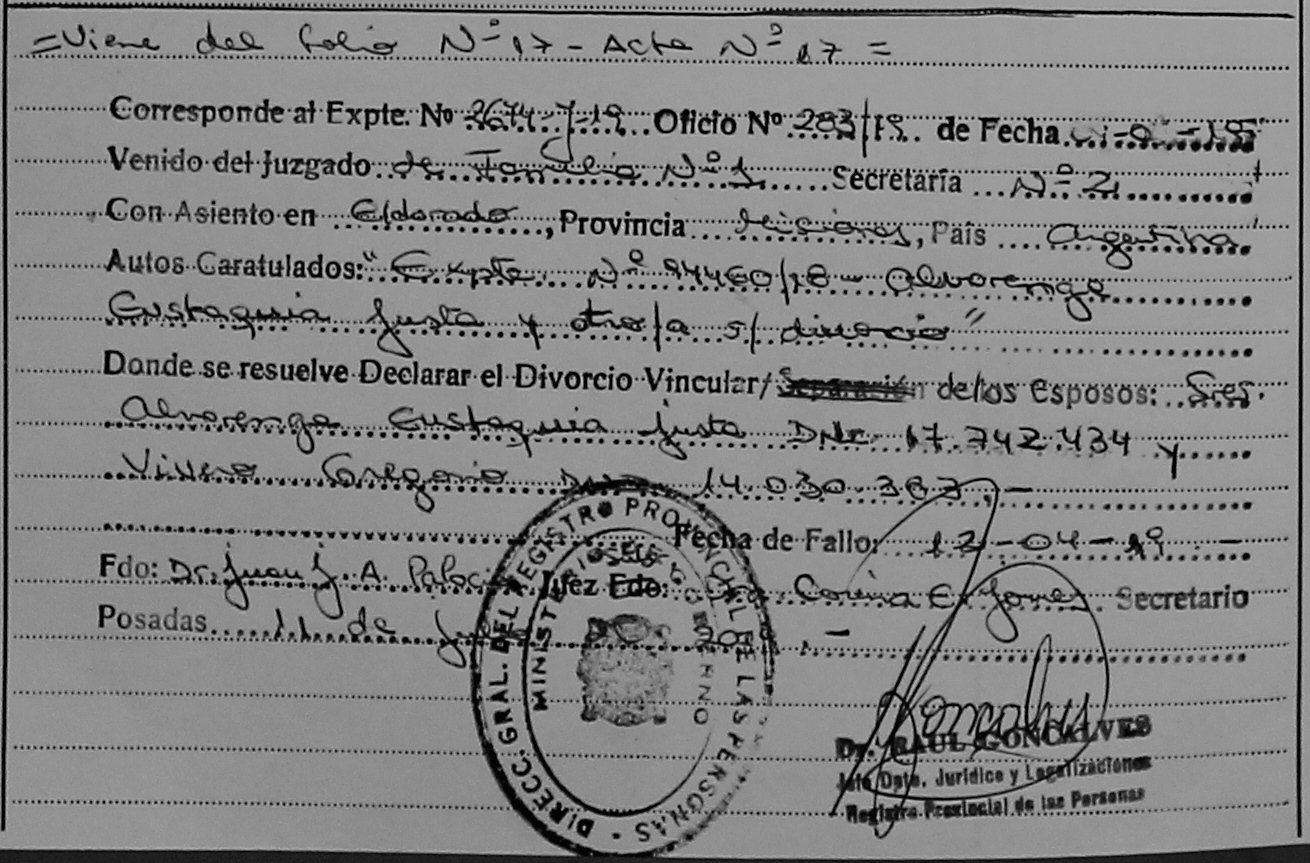 =Viene del folio Nº 17 - Acta Nº 17 =
Corresponde al Expte. Nº 3674-J-19 Oficio Nº 283/19 de Fecha
Venido del Juzgado de Familia Nº 1 Secretaría Nº 2
Con Asiento en Eldorado, Provincia Misiones, País Argentina
Autos Caratulados: "Expte. Nº 94460/18 - Alvarenga
Eustaquia Justa y otro/a s/ divorcio"
Donde se resuelve Declarar el Divorcio Vincular/Separación de los Esposos: Sres.
Alvarenga Eustaquia Justa DNI. 17.742.434 y
Gregorio DNI 14.030.383.-
Fecha de Fallo: 12-04-19.-
Fdo: Dr. Juan J. A. Juez Fdo: Corina E. Secretario
Posadas 11 de
DIRECC. GRAL. DEL REGISTRO PROVINCIAL DE LAS PERSONAS
MINISTERIO DE GOBIERNO
Dr. RAUL GONCALVES
Jefe Dpto. Jurídico y Legalizaciones
Registro Provincial de las Personas